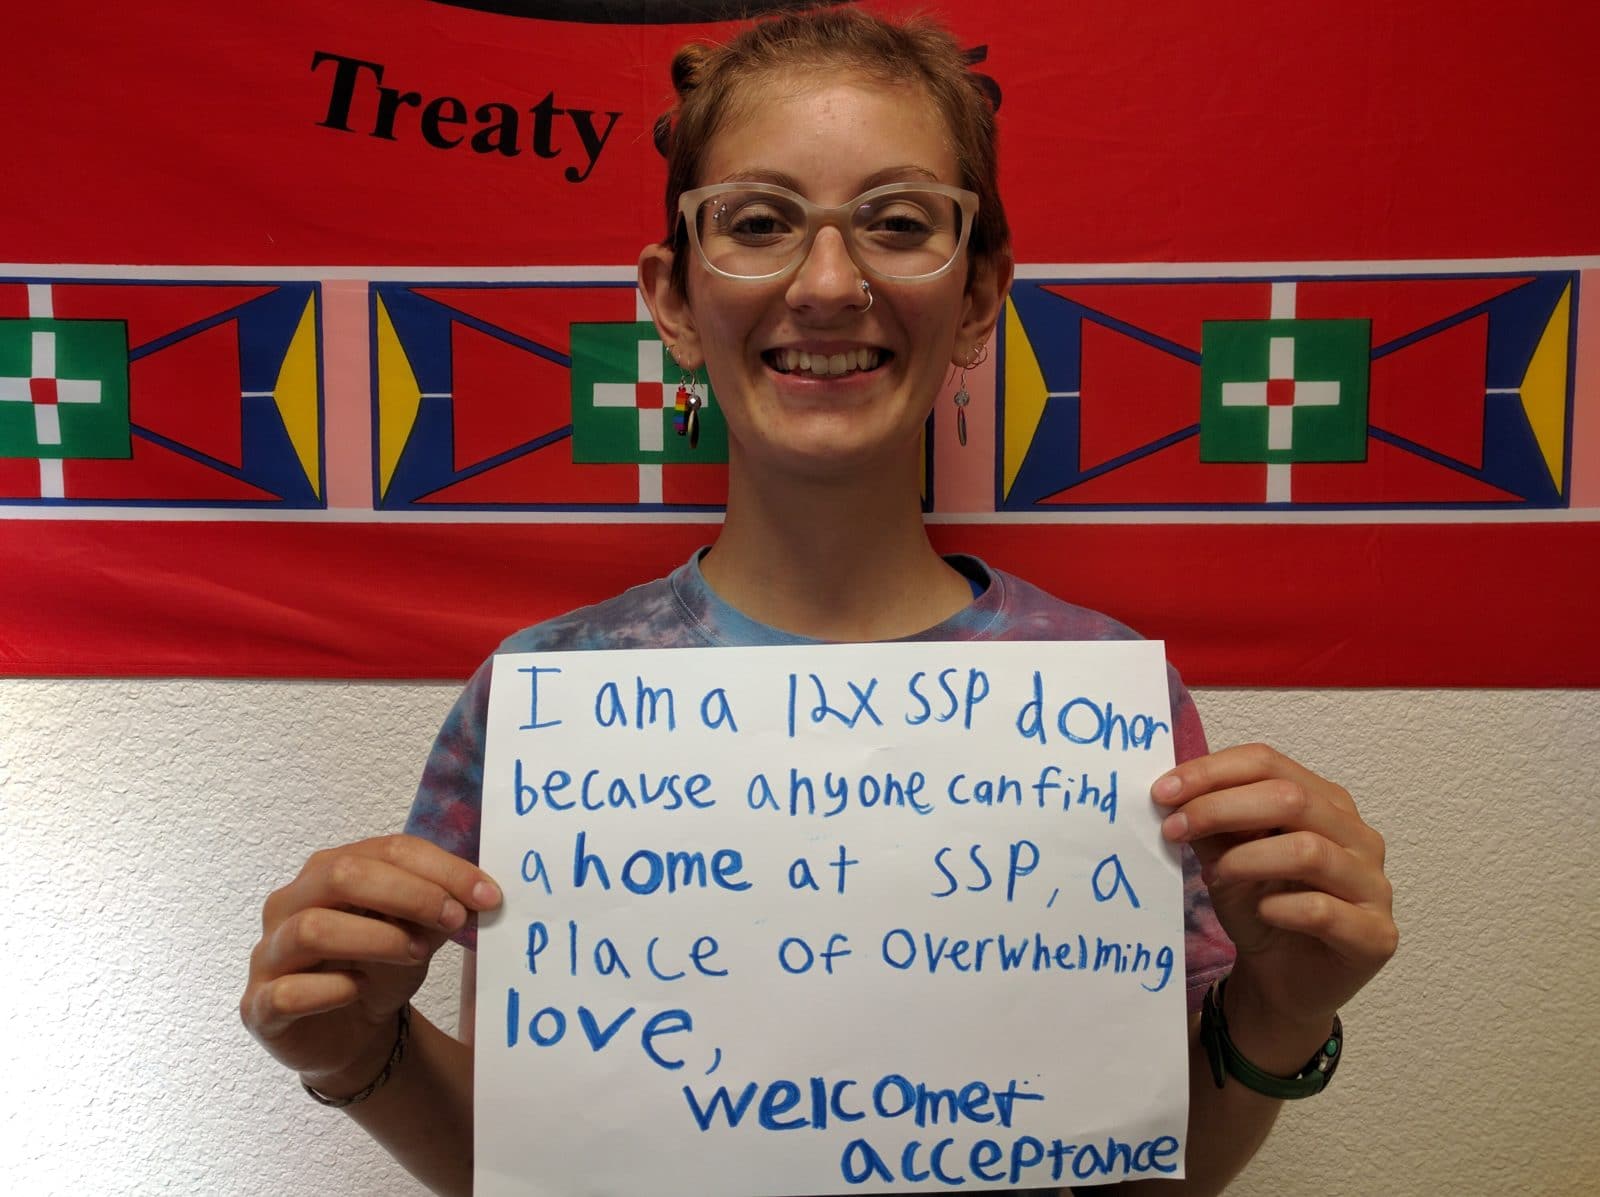 Treaty
I am a 12x SSP donor
because anyone can find
a home at SSP, a
Place of overwhelming
love,
welcome +
acceptance